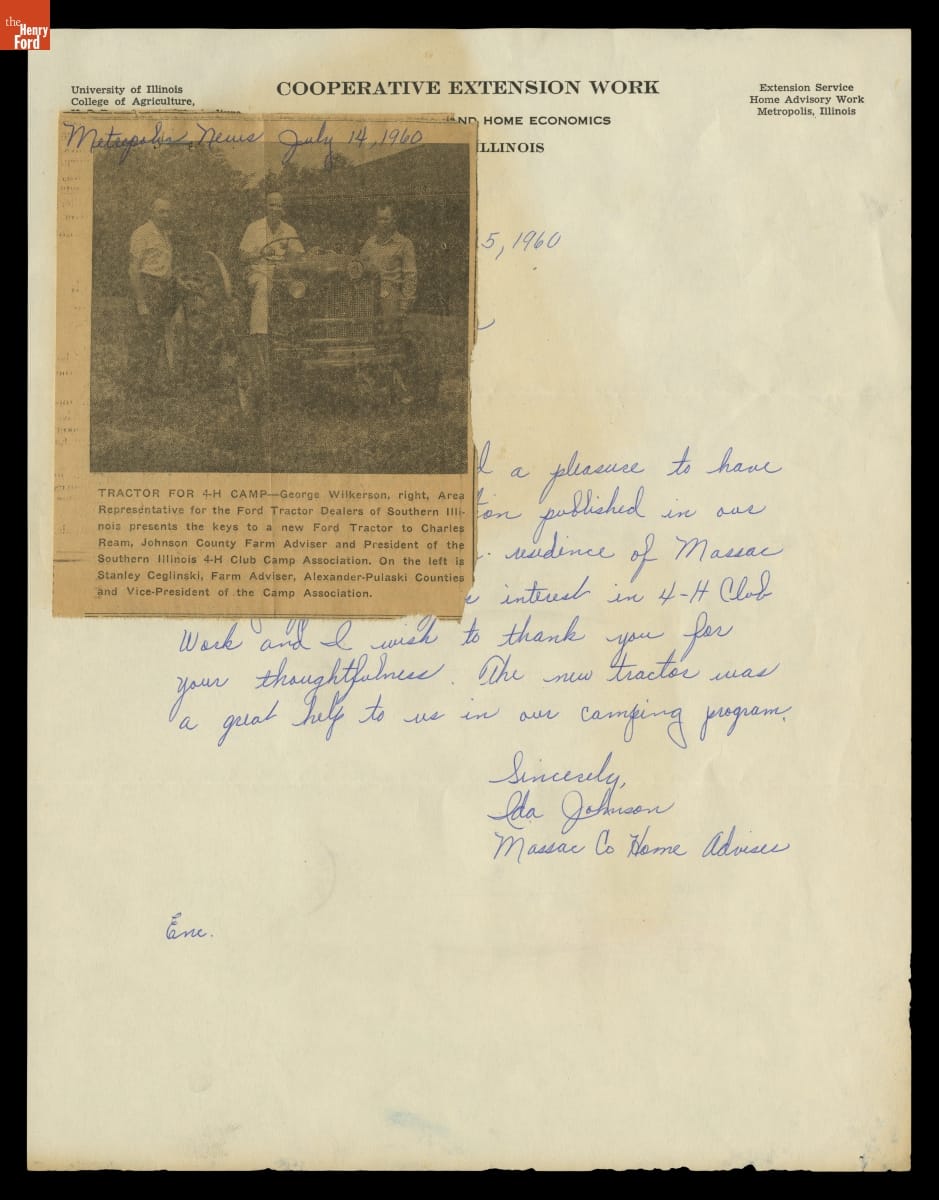 the
Henry
Ford
University of Illinois
College of Agriculture,
COOPERATIVE EXTENSION WORK
AND HOME ECONOMICS
ILLINOIS
Extension Service
Home Advisory Work
Metropolis, Illinois
Metropolis News July 14, 1960
5, 1960
TRACTOR FOR 4-H CAMP—George Wilkerson, right, Area
Representative for the Ford Tractor Dealers of Southern Illi-
nois presents the keys to a new Ford Tractor to Charles
Ream, Johnson County Farm Adviser and President of the
Southern Illinois 4-H Club Camp Association. On the left is
Stanley Ceglinski, Farm Adviser, Alexander-Pulaski Counties
and Vice-President of the Camp Association.
a pleasure to have
published in our
residence of Massac
interest in 4-H Club
Work and I wish to thank you for
your thoughtfulness. The new tractor was
a great help to us in our camping program.
Sincerely,
Ida Johnson
Massac Co Home Adviser
Enc.